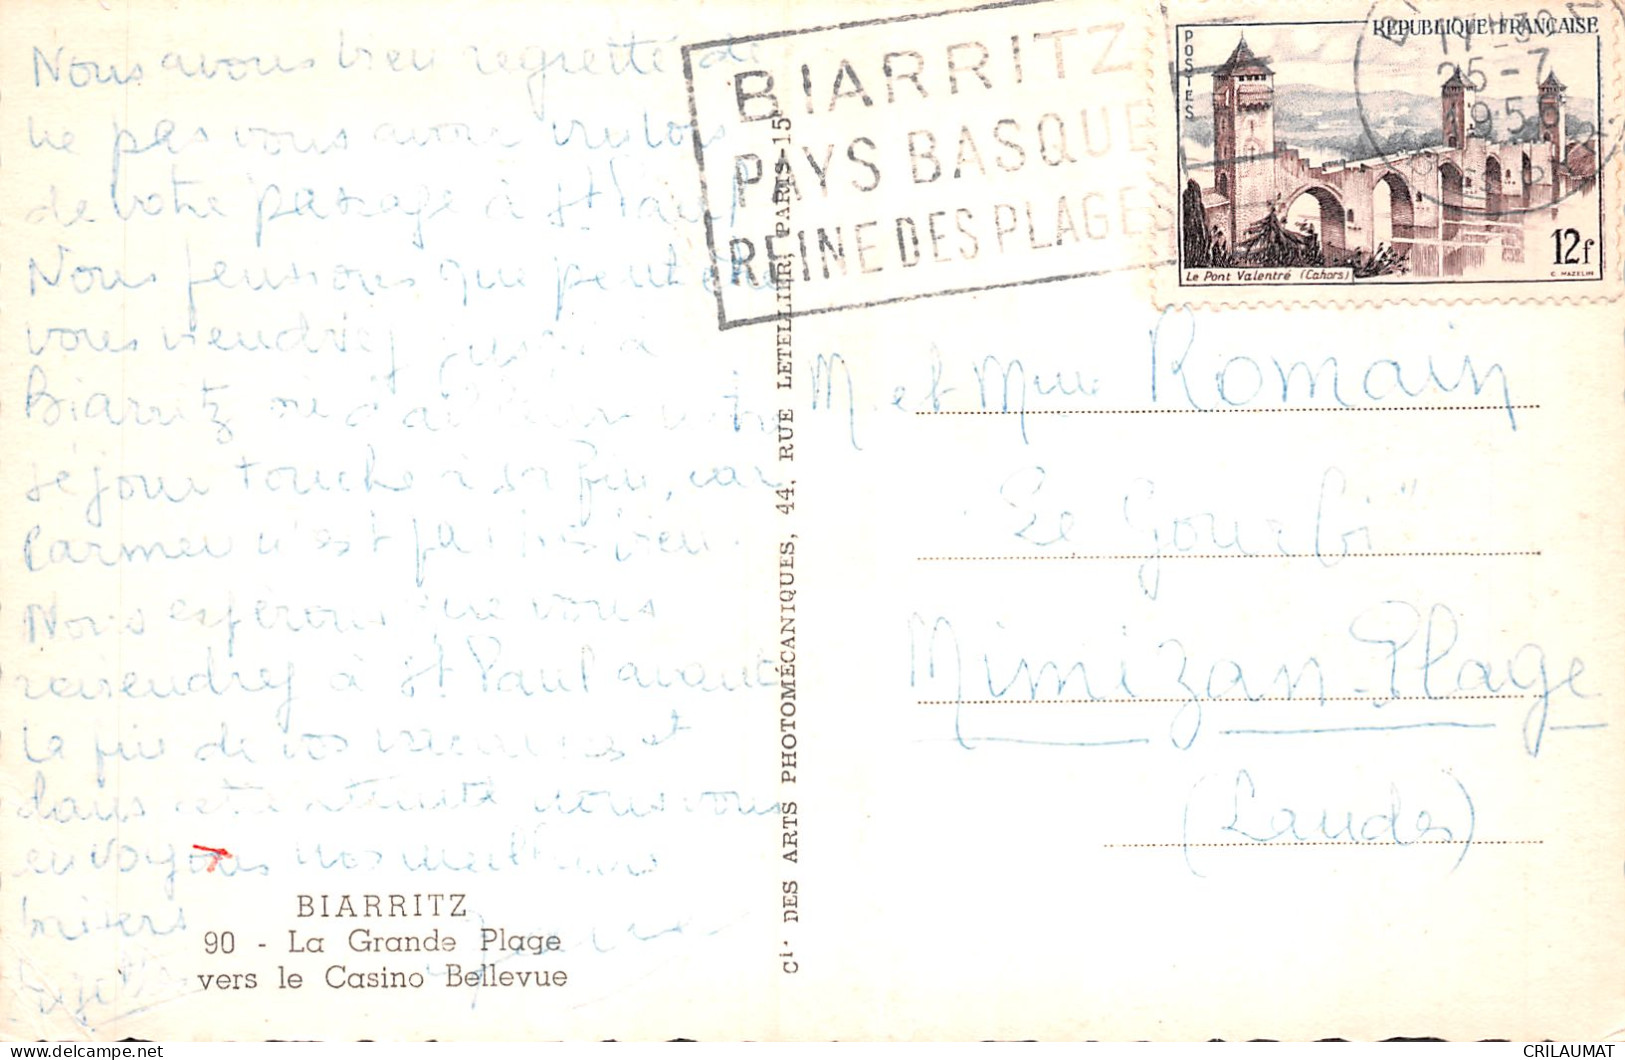 Nous avons bien regretté de
ne pas vous avoir vus lors
de votre passage à St Paul
Nous pensions que peut être
vous viendrez jusqu'à
Biarritz
séjour touche à sa fin, car
Carmen n'est pas très bien.
Nous espérons que vous
reviendrez à St Paul avant
la fin de vos vacances et
dans cette attente nous vous
envoyons nos meilleurs
baisers
BIARRITZ
90 - La Grande Plage
vers le Casino Bellevue
Ci. DES ARTS PHOTOMÉCANIQUES, 44, RUE LETELLIER, PARIS-15
BIARRITZ
PAYS BASQUE
REINE DES PLAGES
REPUBLIQUE FRANÇAISE
POSTES
25-7
1956
12f
Le Pont Valentré (Cahors)
C. MAZELIN
M. et Mme Romain
"Le Gourbi"
Mimizan-Plage
(Landes)
CRILAUMAT